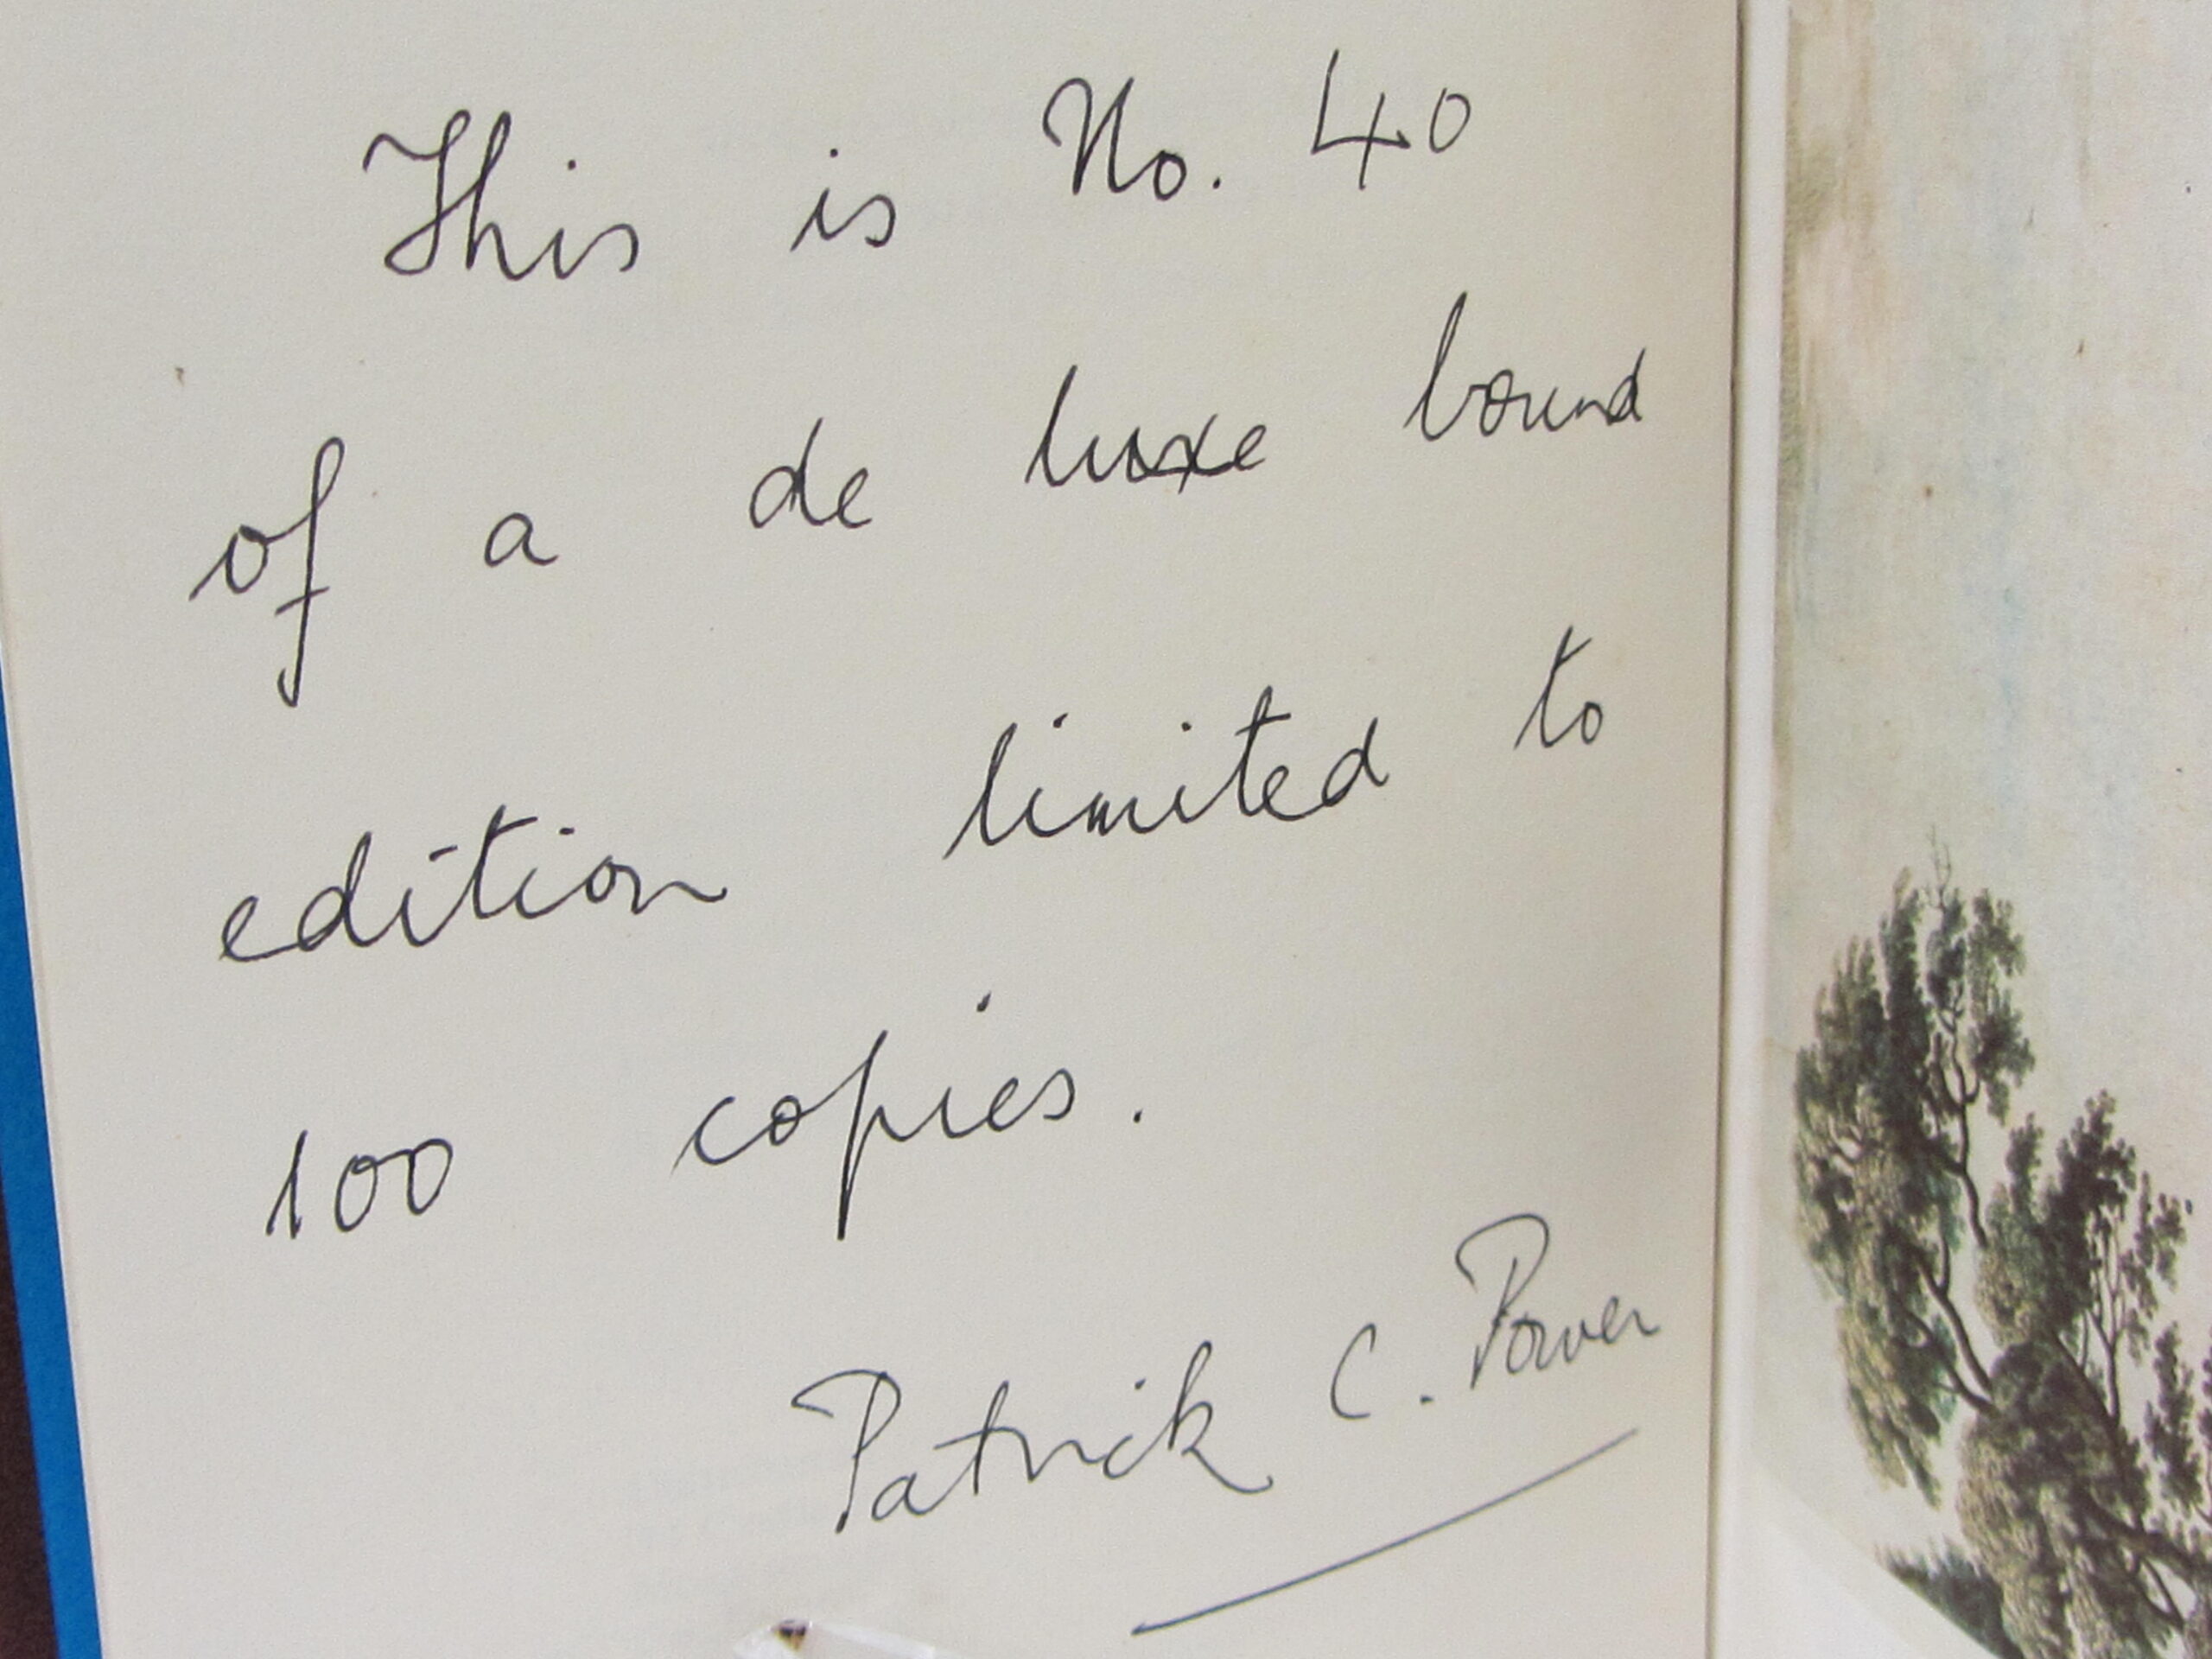 This is No. 40
of a de luxe bound
edition limited to
100 copies.
Patrick C. Power